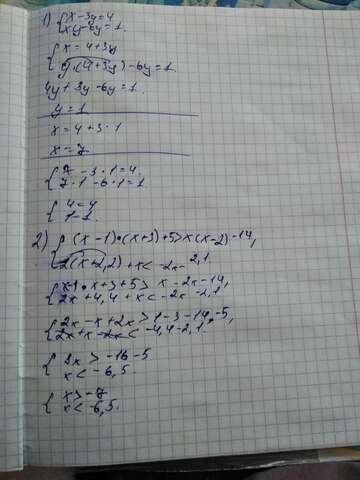 1) { x - 3y = 4
xy - 6y = 1.
{ x = 4 + 3y
y·(4 + 3y) - 6y = 1.
4y + 3y - 6y = 1.
y = 1
x = 4 + 3 · 1
x = 7
{ 7 - 3 · 1 = 4.
7 · 1 - 6 · 1 = 1
{ 4 = 4
1 = 1.
2) { (x - 1)·(x + 3) + 5 > x(x - 2) - 14,
2(x + 2,2) + x < -2x - 2,1
{ x - 1 · x + 3 + 5 > x - 2x - 14,
2x + 4,4 + x < -2x - 2,1
{ 2x - x + 2x > 1 - 3 - 14 - 5,
2x + x - 2x < -4,4 - 2,1.
{ 3x > -16 - 5
x < -6,5
{ x > -7
x < -6,5.